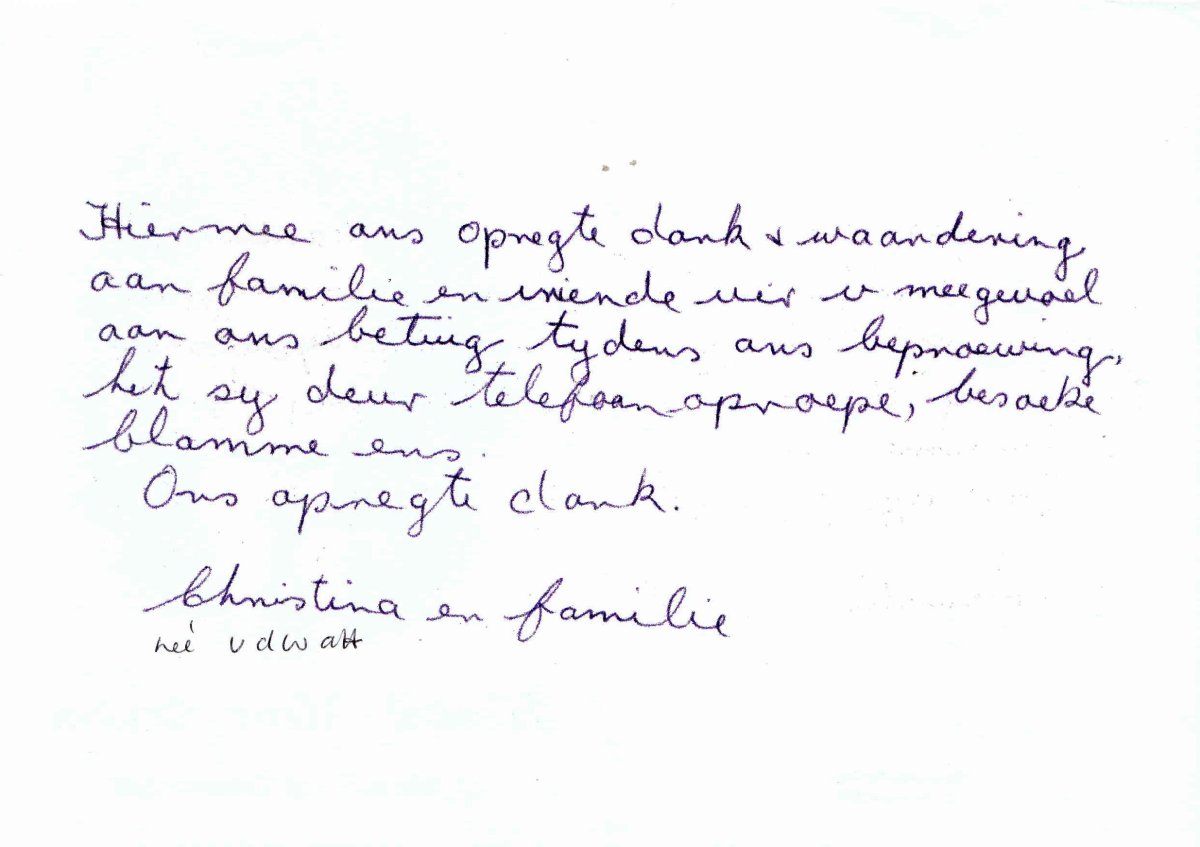 Hiermee ons opregte dank & waardering
aan familie en vriende vir u meegevoel
aan ons betuig tydens ons beproewing,
het sy deur telefoonoproepe, besoeke
blomme ens.
Ons opregte dank.
Christina en familie
neé vdWatt